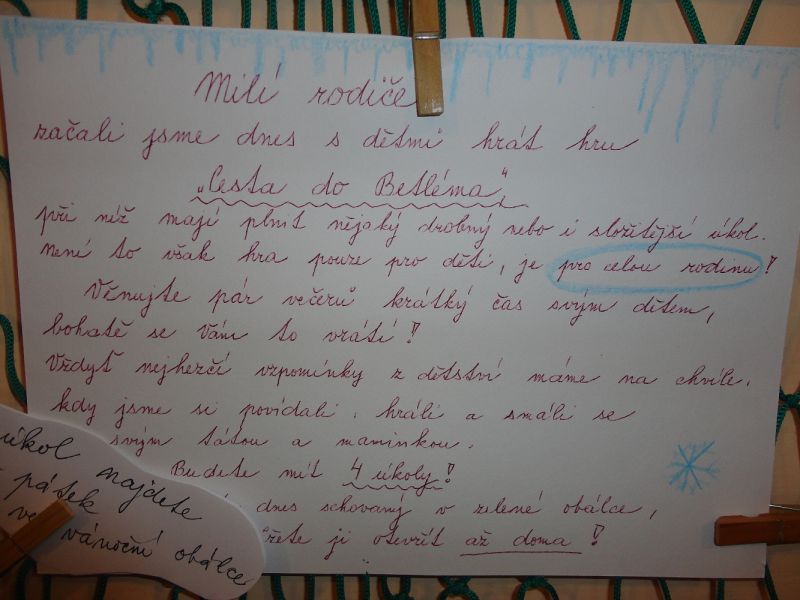 Milí rodiče
začali jsme dnes s dětmi hrát hru
„Cesta do Betléma",
při níž mají plnit nějaký drobný nebo i složitější úkol.
Není to však hra pouze pro děti, je pro celou rodinu!
Věnujte pár večerů krátký čas svým dětem,
bohatě se Vám to vrátí!
Vždyť nejhezčí vzpomínky z dětství máme na chvíle,
kdy jsme si povídali, hráli a smáli se
svým tátou a maminkou.
Budete mít 4 úkoly!
dnes schovaný v zelené obálce,
ji otevřít až doma!
úkol najdete
pátek
vánoční obálce